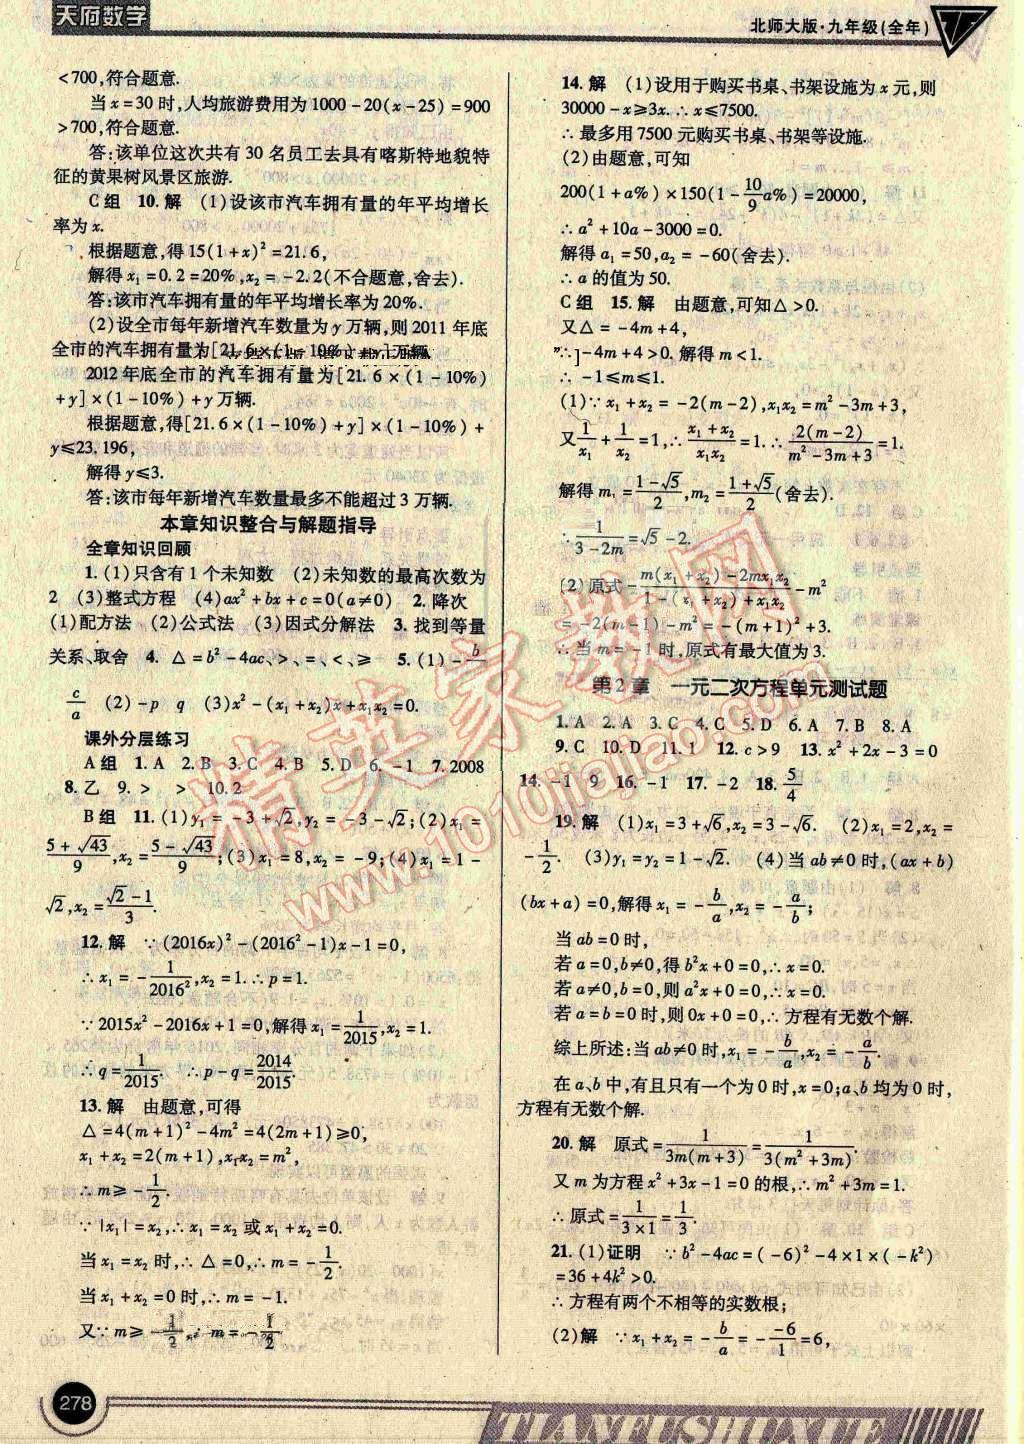 天府数学
北师大版·九年级(全年)
<700,符合题意.
当x=30时,人均旅游费用为1000-20(x-25)=900
>700,符合题意.
答:该单位这次共有30名员工去具有喀斯特地貌特
征的黄果树风景区旅游.
C组 10.解 (1)设该市汽车拥有量的年平均增长
率为x.
根据题意,得15(1+x)²=21.6,
解得x₁=0.2=20%,x₂=-2.2(不合题意,舍去).
答:该市汽车拥有量的年平均增长率为20%.
(2)设全市每年新增汽车数量为y万辆,则2011年底
全市的汽车拥有量为[21.6×(1-10%)+y]万辆,
2012年底全市的汽车拥有量为[21.6×(1-10%)
+y]×(1-10%)+y万辆.
根据题意,得[21.6×(1-10%)+y]×(1-10%)+
y≤23.196,
解得y≤3.
答:该市每年新增汽车数量最多不能超过3万辆.
本章知识整合与解题指导
全章知识回顾
1.(1)只含有1个未知数 (2)未知数的最高次数为
2 (3)整式方程 (4)ax²+bx+c=0(a≠0) 2.降次
(1)配方法 (2)公式法 (3)因式分解法 3.找到等量
关系、取舍 4.△=b²-4ac、>、=、<、≥ 5.(1)-b/a
c/a (2)-p q (3)x²-(x₁+x₂)x+x₁x₂=0.
课外分层练习
A组 1.A 2.B 3.C 4.B 5.D 6.-1 7.2008
8.乙 9.> > 10.2
B组 11.(1)y₁=-3+√2,y₂=-3-√2;(2)x₁=
(5+√43)/9,x₂=(5-√43)/9;(3)x₁=8,x₂=-9;(4)x₁=1-
√2,x₂=(√2-1)/3.
12.解 ∵(2016x)²-(2016²-1)x-1=0,
∴x₁=-1/2016²,x₂=1.∴p=1.
∵2015x²-2016x+1=0,解得x₁=1/2015,x₂=1.
∴q=1/2015. ∴p-q=2014/2015.
13.解 由题意,可得
△=4(m+1)²-4m²=4(2m+1)≥0,
x₁+x₂=2(m+1),x₁x₂=m²,
∴m≥-1/2.
∵|x₁|=x₂,∴x₁=x₂或x₁+x₂=0.
当x₁=x₂时,∴△=0,∴m=-1/2.
当x₁+x₂=0时,∴m=-1.
又∵m≥-1/2,∴m=-1/2
14.解 (1)设用于购买书桌、书架设施为x元,则
30000-x≥3x.∴x≤7500.
∴最多用7500元购买书桌、书架等设施.
(2)由题意,可知
200(1+a%)×150(1-10/9a%)=20000,
∴a²+10a-3000=0.
解得a₁=50,a₂=-60(舍去).
∴a的值为50.
C组 15.解 由题意,可知△>0.
又△=-4m+4,
∴-4m+4>0,解得m<1.
∴-1≤m≤1.
(1)∵x₁+x₂=-2(m-2),x₁x₂=m²-3m+3,
又1/x₁+1/x₂=1,∴(x₁+x₂)/(x₁x₂)=1.∴-2(m-2)/(m²-3m+3)=1.
解得m₁=(1-√5)/2,m₂=(1+√5)/2(舍去).
∴1/(3-2m)=√5-2.
(2)原式=[m(x₁+x₂)-2mx₁x₂]/[1-(x₁+x₂)+x₁x₂]-m²
=-2(m-1)-m²=-(m+1)²+3.
∴当m=-1时,原式有最大值为3.
第2章 一元二次方程单元测试题
1.A 2.A 3.C 4.C 5.D 6.A 7.B 8.A
9.C 10.D 11.1 12.c>9 13.x²+2x-3=0
14.-1 9 16.-1 17.-2 18.5/4
19.解 (1)x₁=3+√6,x₂=3-√6. (2)x₁=2,x₂=
-1/2. (3)y₁=y₂=1-√2. (4)当ab≠0时,(ax+b)
(bx+a)=0,解得x₁=-b/a,x₂=-a/b;
当ab=0时,
若a=0,b≠0,得b²x+0=0,∴x=0.
若a≠0,b=0,则a²x+0=0,∴x=0.
若a=b=0时,则0x+0=0,∴方程有无数个解.
综上所述:当ab≠0时,x₁=-b/a,x₂=-a/b.
在a、b中,有且只有一个为0时,x=0;a、b均为0时,
方程有无数个解.
20.解 原式=1/3m(m+3)=1/3(m²+3m).
又m为方程x²+3x-1=0的根,∴m²+3m=1.
∴原式=1/(3×1)=1/3.
21.(1)证明 ∵b²-4ac=(-6)²-4×1×(-k²)
=36+4k²>0.
∴方程有两个不相等的实数根;
(2)解 ∵x₁+x₂=-b/a=--6/1=6,
278
TIANFUSHUXUE
精英家教网
www.1010jiajiao.com